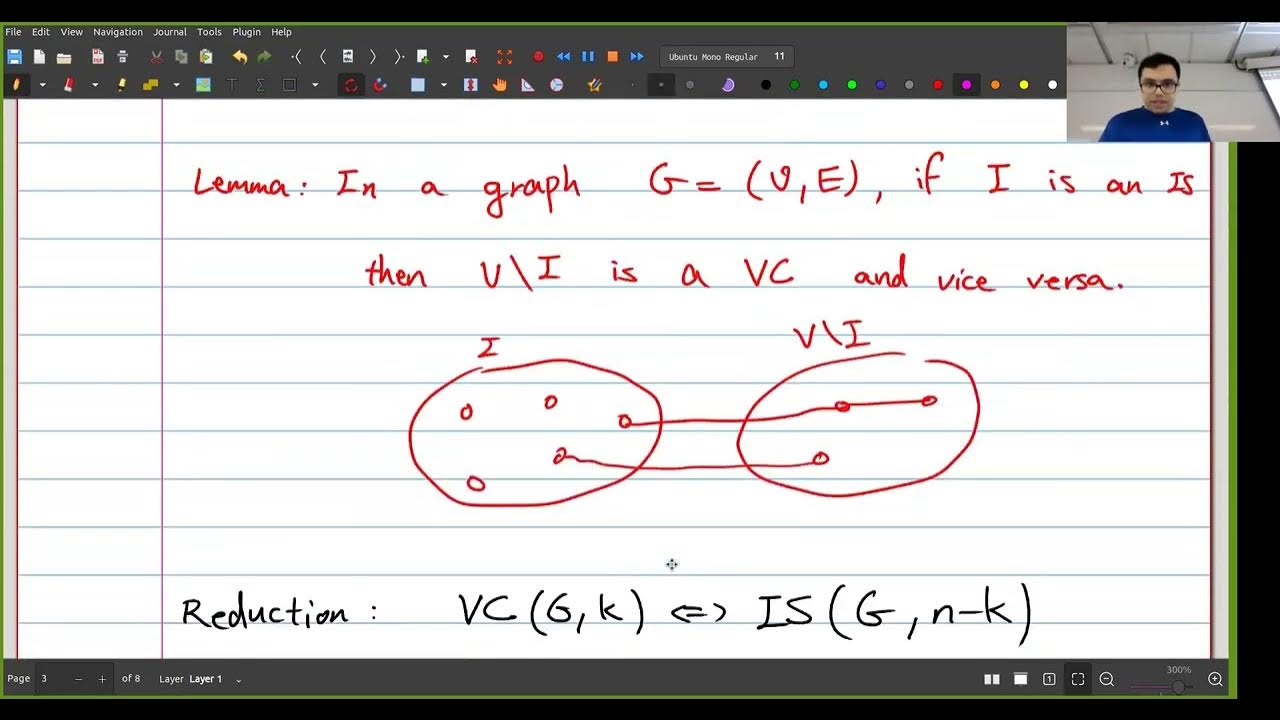 File Edit View Navigation Journal Tools Plugin Help
Ubuntu Mono Regular 11
Lemma: In a graph G = (V, E), if I is an IS
then V\I is a VC and vice versa.
I
V\I
Reduction: VC(G, k) <=> IS(G, n-k)
Page 3 − + of 8 Layer Layer 1
300%